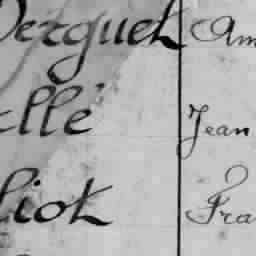 Derguet Am
ellé Jean
liot Fra